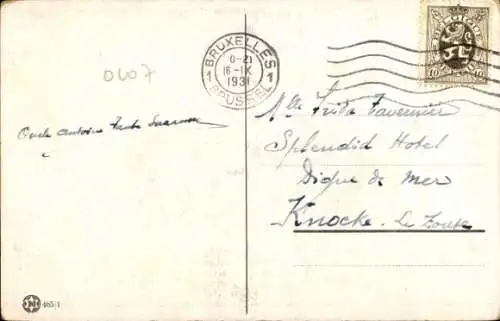 BRUXELLES
0-21
16-IX
1931
1 1
BRUSSEL
BELGIQUE
10 10
0407
Mlle Frida Tavernier
Splendid Hotel
Digue de Mer
Knocke-Le Zoute
Oncle Antoine Tante
465/1